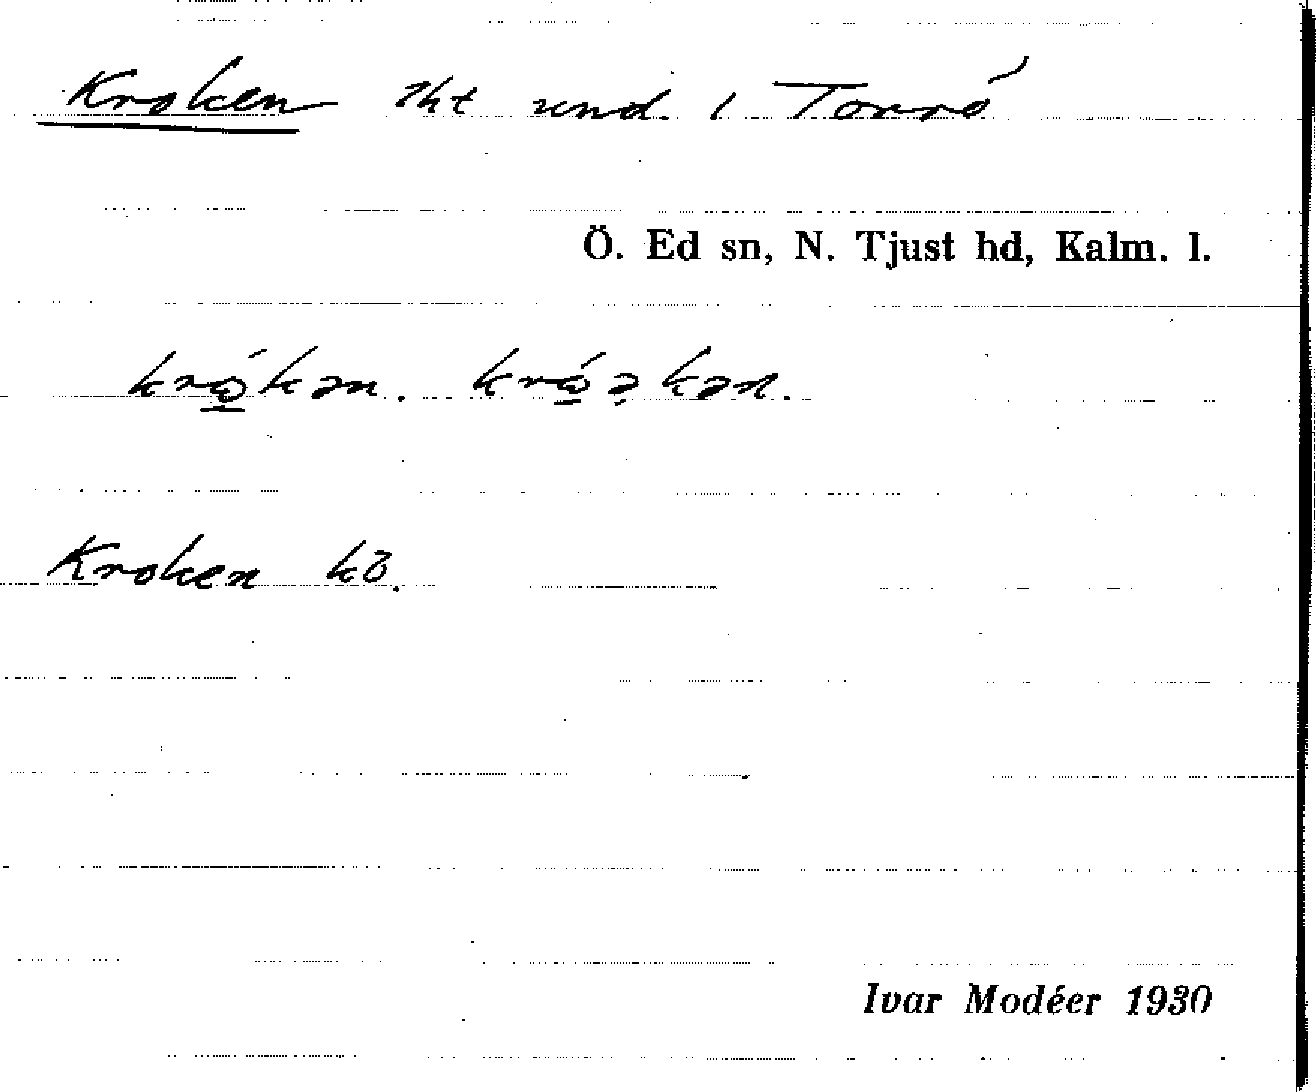 Kroken lht und. 1 Torrö
Ö. Ed sn, N. Tjust hd, Kalm. l.
krǫ́kən. krǫ́ə̣kən.
Kroken kö.
Ivar Modéer 1930